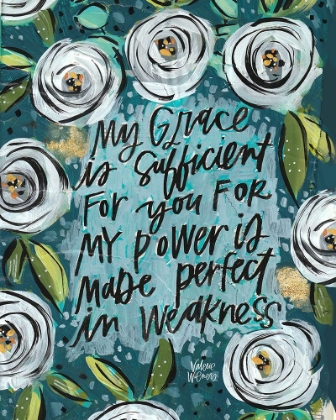 My Grace
is sufficient
FOR you FOR
MY poWER is
MaDe perfect
in WeakNess
Valerie
Wieners